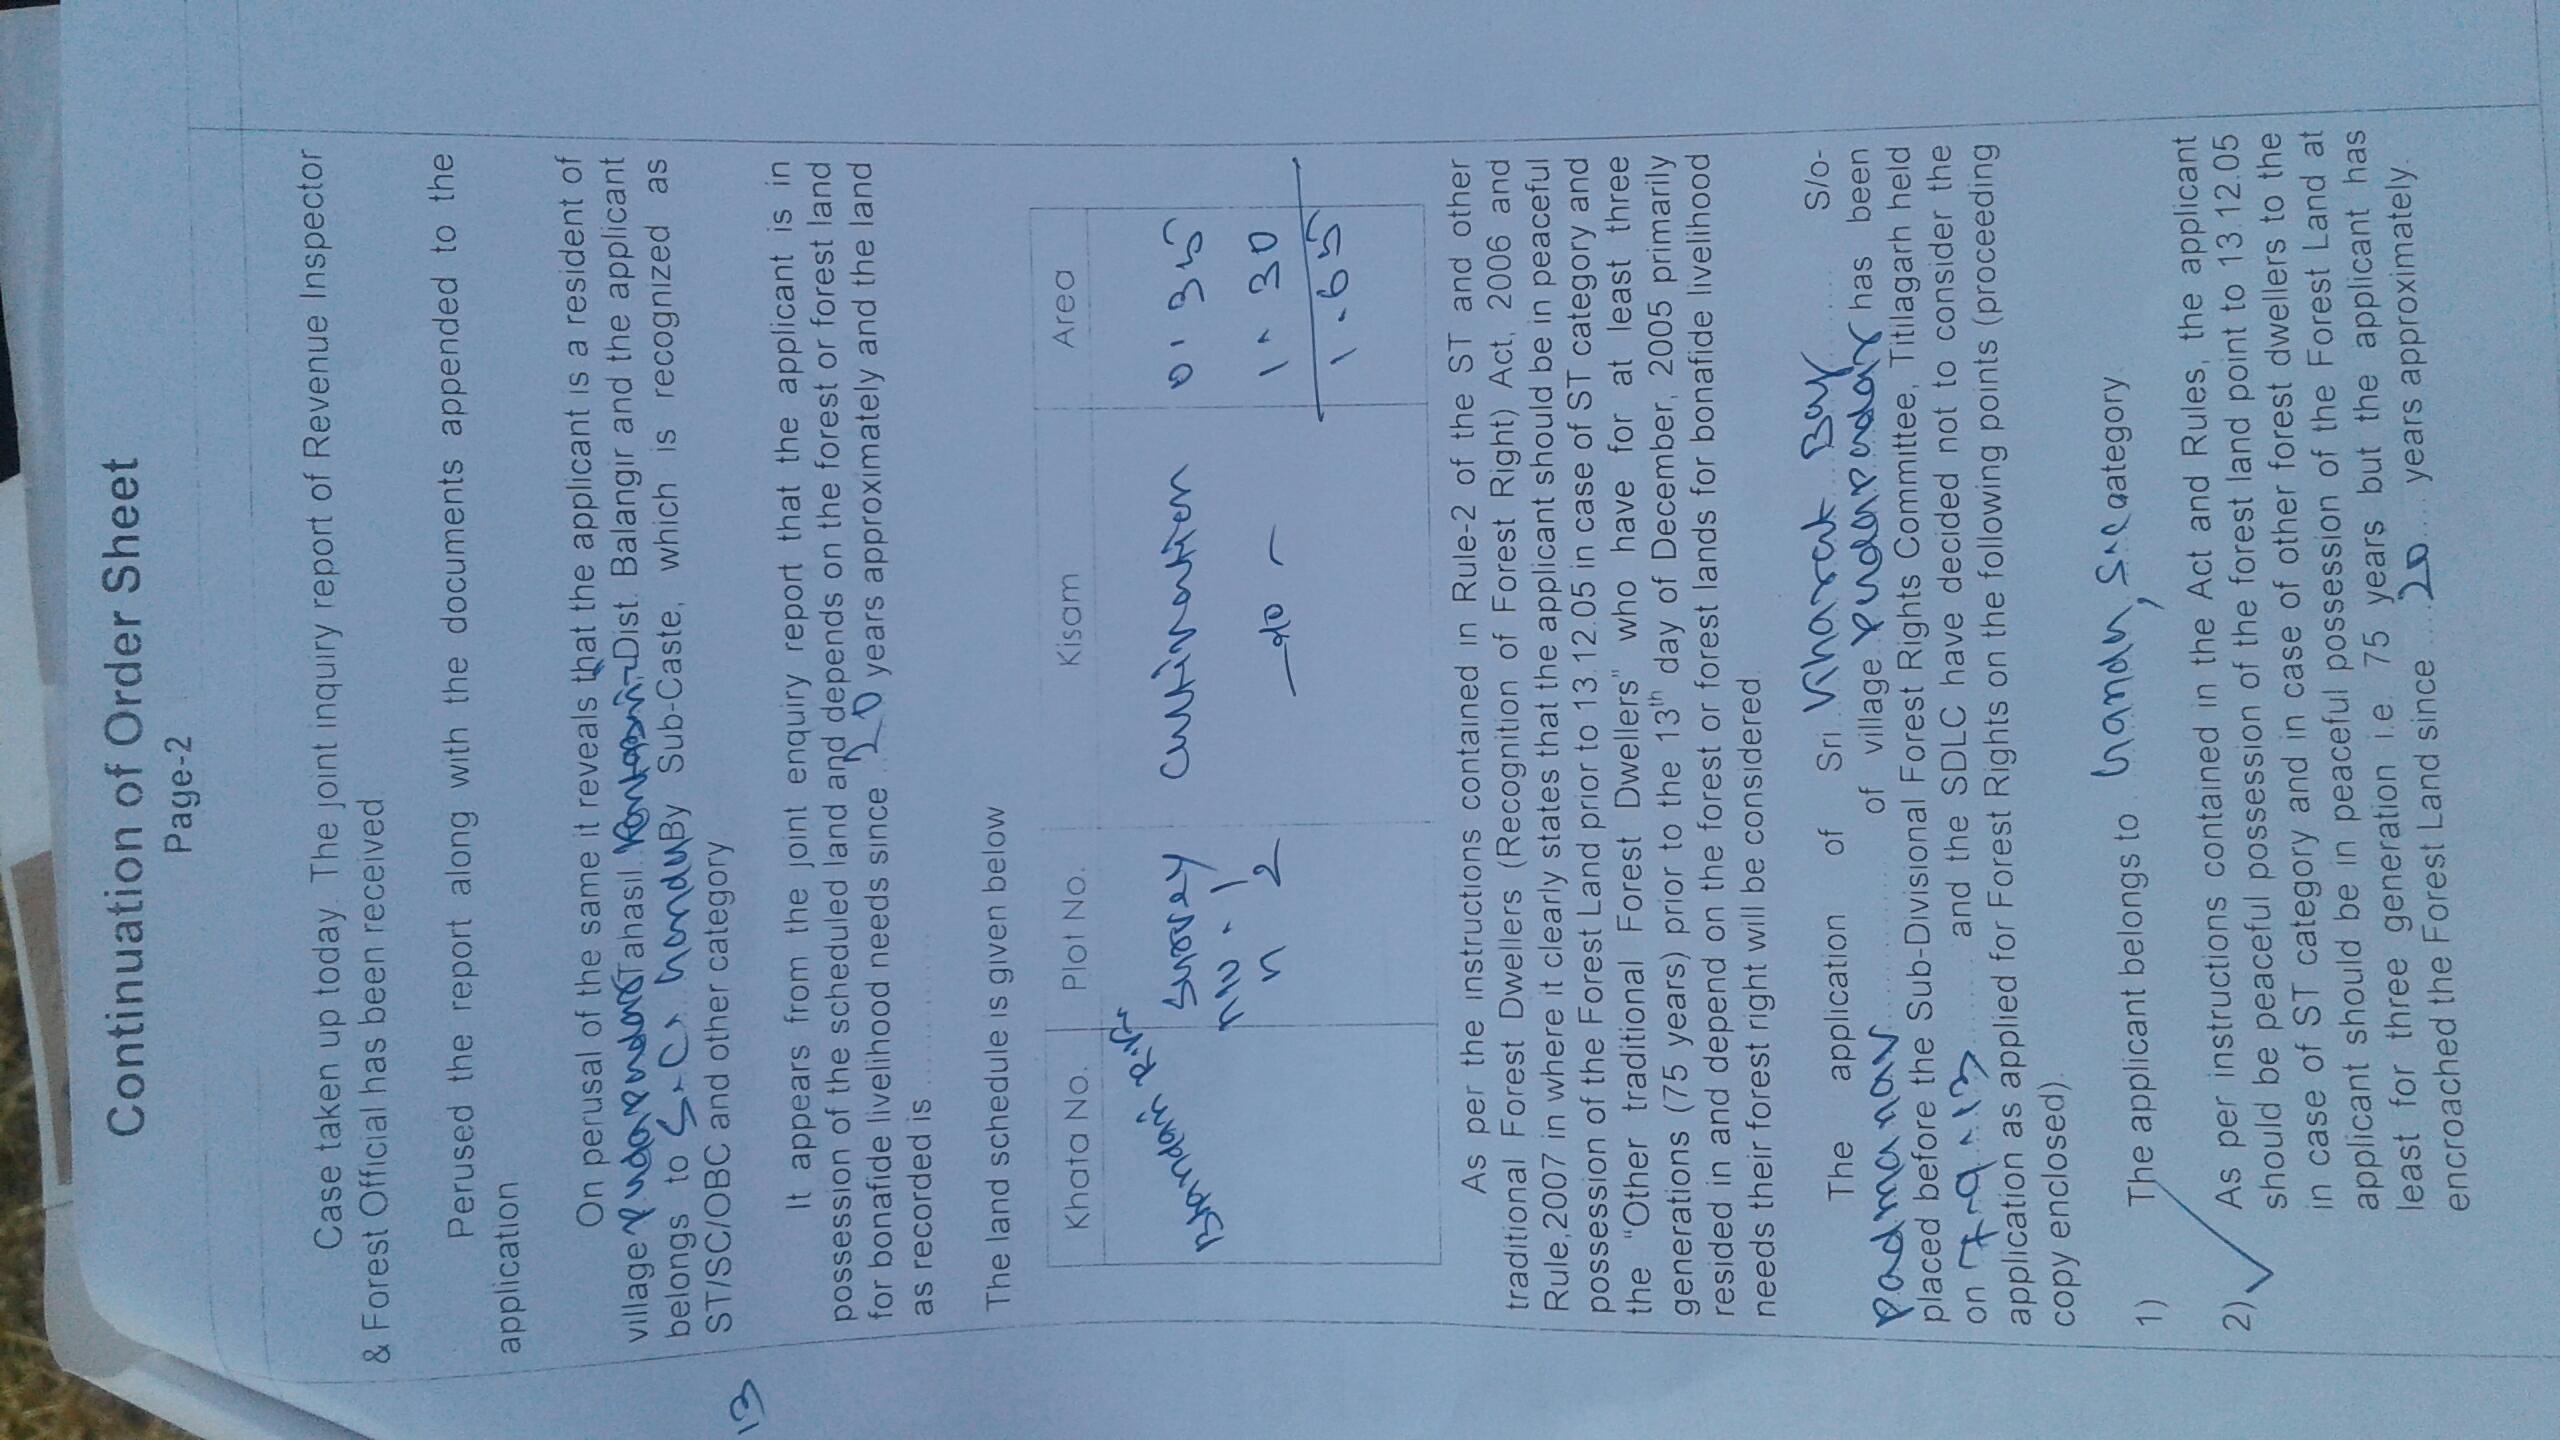 Continuation of Order Sheet
Page-2
Case taken up today. The joint inquiry report of Revenue Inspector
& Forest Official has been received
Perused the report along with the documents appended to the
application
On perusal of the same it reveals that the applicant is a resident of
village Pudapadar Tahasil Dist. Balangir and the applicant
belongs to S.C. Ganda By Sub-Caste, which is recognized as
ST/SC/OBC and other category
It appears from the joint enquiry report that the applicant is in
possession of the scheduled land and depends on the forest or forest land
for bonafide livelihood needs since 20 years approximately and the land
as recorded is ............
The land schedule is given below
Khata No. Plot No. Kisam Area
Survey Cultivation 0.35
No. 1
" 2 —do— 1.30
1.65
As per the instructions contained in Rule-2 of the ST and other
traditional Forest Dwellers (Recognition of Forest Right) Act, 2006 and
Rule,2007 in where it clearly states that the applicant should be in peaceful
possession of the Forest Land prior to 13.12.05 in case of ST category and
the "Other traditional Forest Dwellers" who have for at least three
generations (75 years) prior to the 13th day of December, 2005 primarily
resided in and depend on the forest or forest lands for bonafide livelihood
needs their forest right will be considered
The application of Sri. Kharat Bag S/o-
Padmanav of village Pudapadar has been
placed before the Sub-Divisional Forest Rights Committee, Titilagarh held
on 7-9-13 and the SDLC have decided not to consider the
application as applied for Forest Rights on the following points (proceeding
copy enclosed).
1) The applicant belongs to Ganda, S.C category.
2) As per instructions contained in the Act and Rules, the applicant
should be peaceful possession of the forest land point to 13.12.05
in case of ST category and in case of other forest dwellers to the
applicant should be in peaceful possession of the Forest Land at
least for three generation i.e. 75 years but the applicant has
encroached the Forest Land since 20 years approximately.
13